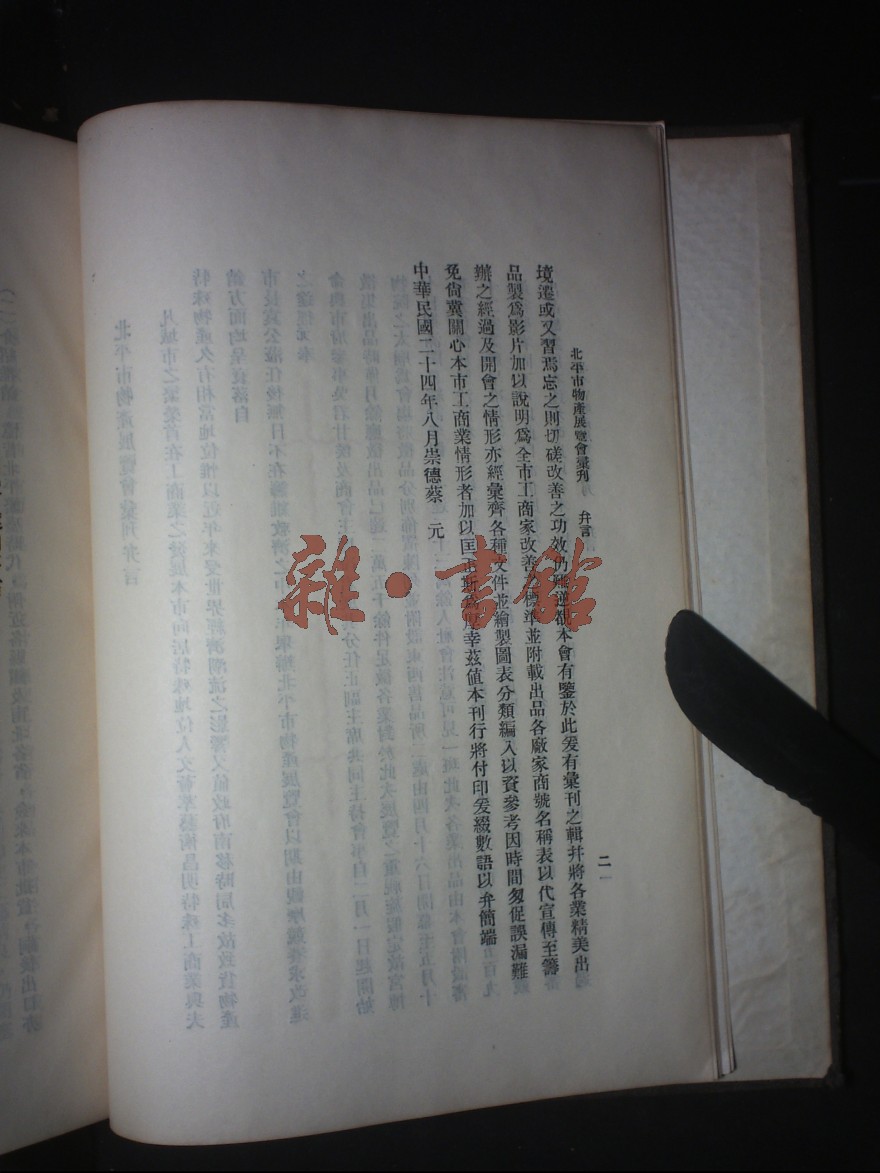 北平市物產展覽會彙刊　弁言
二
境遷或又習焉忘之則切磋改善之功效仍難逆覩本會有鑒於此爰有彙刊之輯幷將各業精美出
品製爲影片加以說明爲全市工商家改善之標準並附載出品各廠家商號名稱表以代宣傳至籌
辦之經過及開會之情形亦經彙齊各種文件並繪製圖表分類編入以資參考因時間匆促誤漏難
免尙冀關心本市工商業情形者加以匡正幸茲值本刊行將付印爰綴數語以弁簡端
中華民國二十四年八月崇德蔡　元
雜·書館